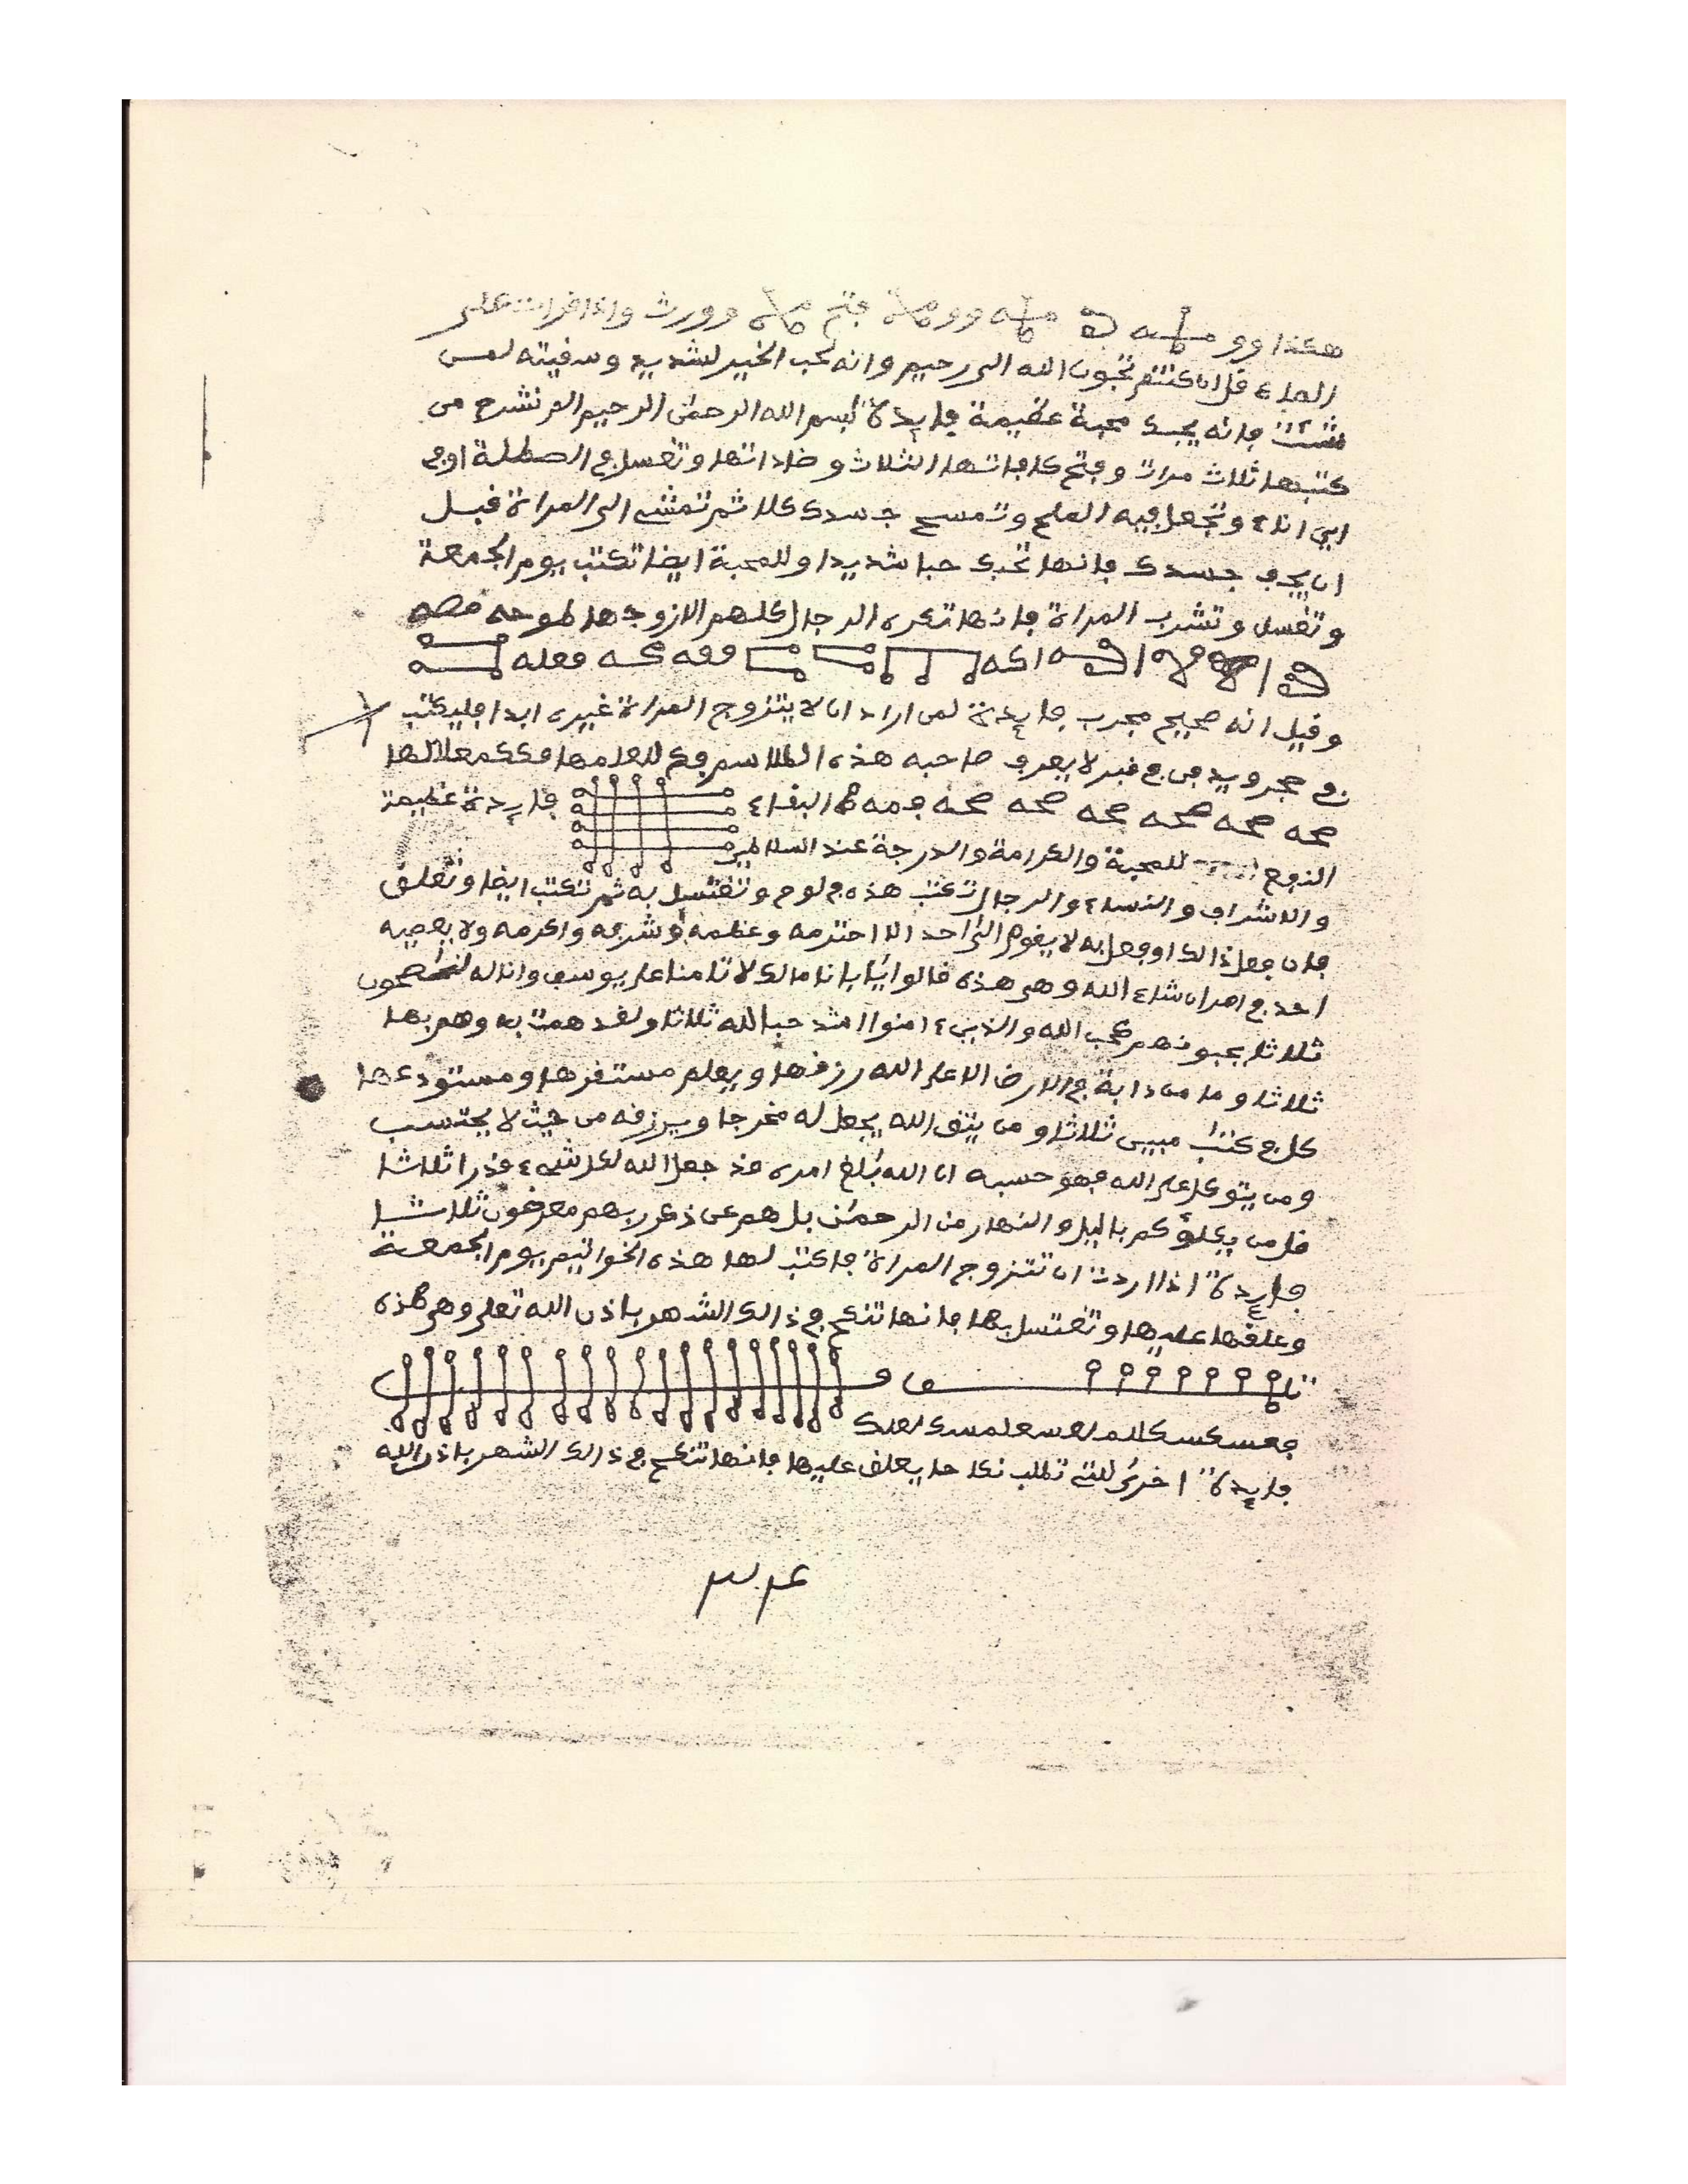 هكذا وو وو فتح وورث واذا قرات على
الماء قل ان كنتم تحبون الله الى رحيم وانه لحب الخير لشديد وسفيته لمن
شئت فانه يحبك محبة عظيمة فايدة بسم الله الرحمن الرحيم الم نشرح من
كتبها ثلاث مرات وفتح كافاتها الثلاث وضاداتها وتغسل في الصطلة او في
اي اناء وتجعل فيه الملح وتمسح جسدك كلا ثم تمشي الى المراة قبل
ان يجف جسدك فانها تحبك حبا شديدا وللمحبة ايضا تكتب يوم الجمعة
وتغسل وتشرب المراة فانها تكره الرجال كلهم الا زوجها
وقيل انه صحيح مجرب فايدة لمن اراد ان لا يتزوج المراة غيره ابدا فليكتب
في حجر ويدفن في قبر لا يعرف صاحبه هذه الطلاسم
صحه صحه صحه صحه صحه صحه البقاء فايدة عظيمة
للمحبة والكرامة والدرجة عند السلاطين
والاشراف والنساء والرجال تكتب هذه في لوح وتغتسل به ثم تكتب ايضا وتعلق
فان فعل ذالك او فعل به لا يقوم الى احد الا احترمه وعظمه وشرفه واكرمه ولا يعصيه
احد في امر ان شاء الله وهي هذه قالوا يابانا مالك لا تامنا على يوسف وانا له لنصحون
ثلاثا يحبونهم كحب الله والذين ءامنوا اشد حبا لله ثلاثا ولقد همت به وهم بها
ثلاثا وما من دابة في الارض الا على الله رزقها ويعلم مستقرها ومستودعها
كل في كتب مبين ثلاثا ومن يتق الله يجعل له مخرجا ويرزقه من حيث لا يحتسب
ومن يتوكل على الله فهو حسبه ان الله بلغ امره قد جعل الله لكل شيء قدرا ثلاثا
قل من يكلؤكم باليل والنهار من الرحمن بل هم عن ذكر ربهم معرضون ثلاثا
فايدة اذا اردت ان تتزوج المراة فاكتب لها هذه الخواتيم يوم الجمعة
وعلقها عليها وتغتسل بها فانها تنكح في ذالك الشهر باذن الله تعلى وهي هذه
فايدة اخرى للتي تطلب نكاحا يعلق عليها فانها تنكح في ذالك الشهر باذن الله